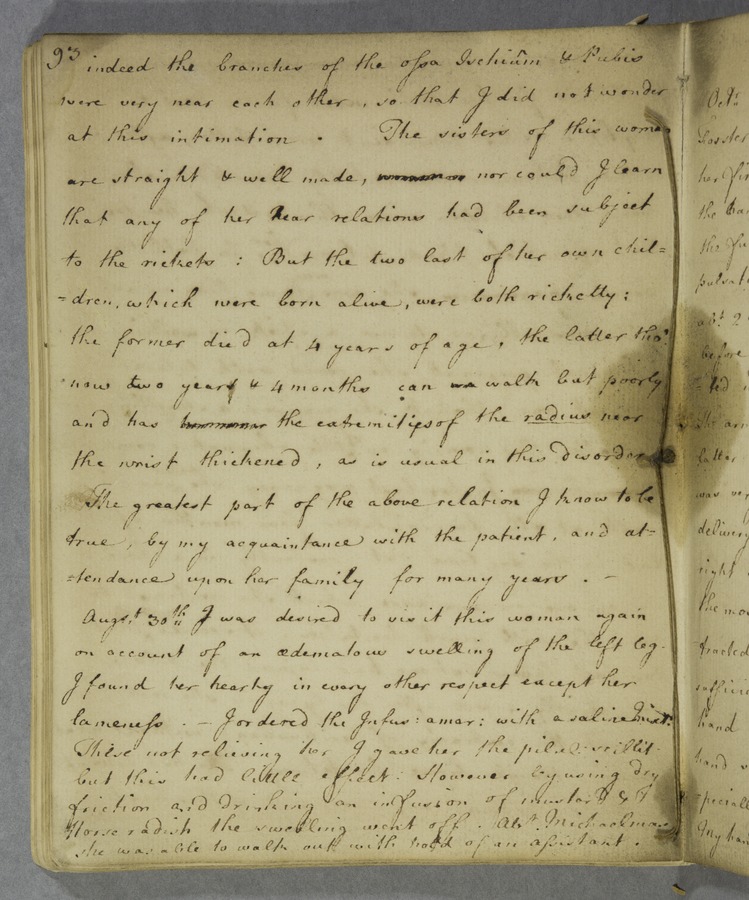 93
indeed the branches of the ossa Ischium & Pubis
were very near each other, so that I did not wonder
at this intimation. The sisters of this woman
are straight & well made, nor could I learn
that any of her near relations had been subject
to the rickets : But the two last of her own chil=
=dren, which were born alive, were both ricketty;
the former died at 4 years of age, the latter tho'
now two years & 4 months can walk but poorly
and has the extremities of the radius near
the wrist thickened, as is usual in this disorder
The greatest part of the above relation I know to be
true, by my acquaintance with the patient, and at=
=tendance upon her family for many years. –
Augst 30th I was desired to visit this woman again
on account of an œdematous swelling of the left leg.
I found her hearty in every other respect except her
lameness. – I ordered the Infus: amar: with a saline mixt:
These not relieving her I gave her the pilul: scillit:
but this had little effect: However by using dry
friction and drinking an infusion of mustard &
Horse radish the swelling went off. Abt Michaelmas
she was able to walk out with hold of an assistant.
Octr
her
the
the
before
latter
was
delivery
right
the
hand
hand